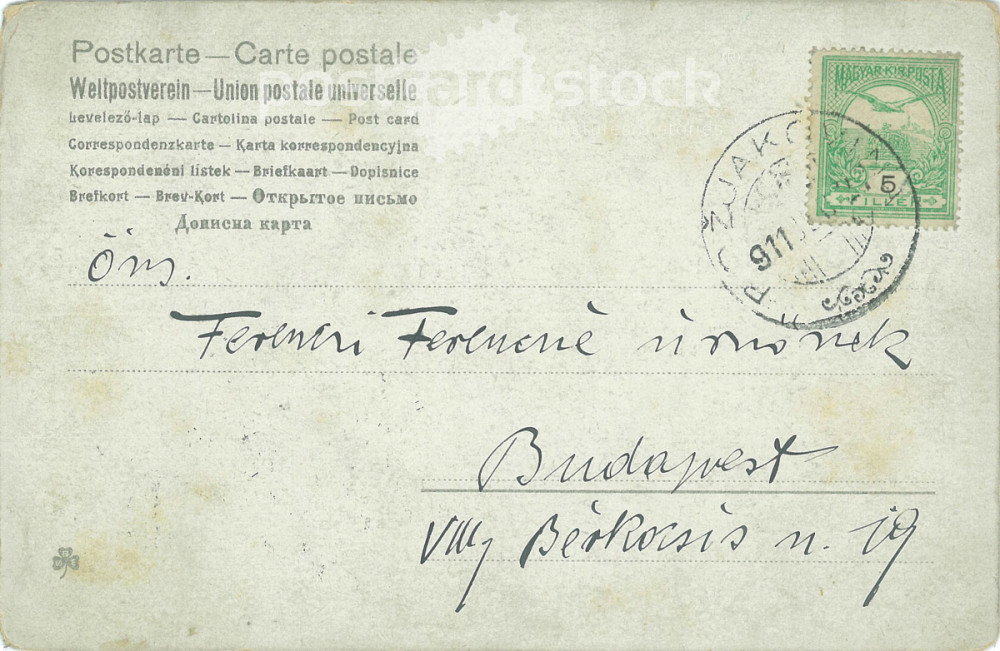 Postkarte — Carte postale
Weltpostverein — Union postale universelle
Levelező-lap — Cartolina postale — Post card
Correspondenzkarte — Karta korrespondencyjna
Korespondenční listek — Briefkaart — Dopisnice
Brefkort — Brev-Kort — Открытое письмо
Дописна карта
postcard stock
MAGYAR KIR. POSTA
5
FILLÉR
911
Öns.
Ferenczi Ferencné úrnőnek
Budapest
VIII, Bérkocsis u. 19